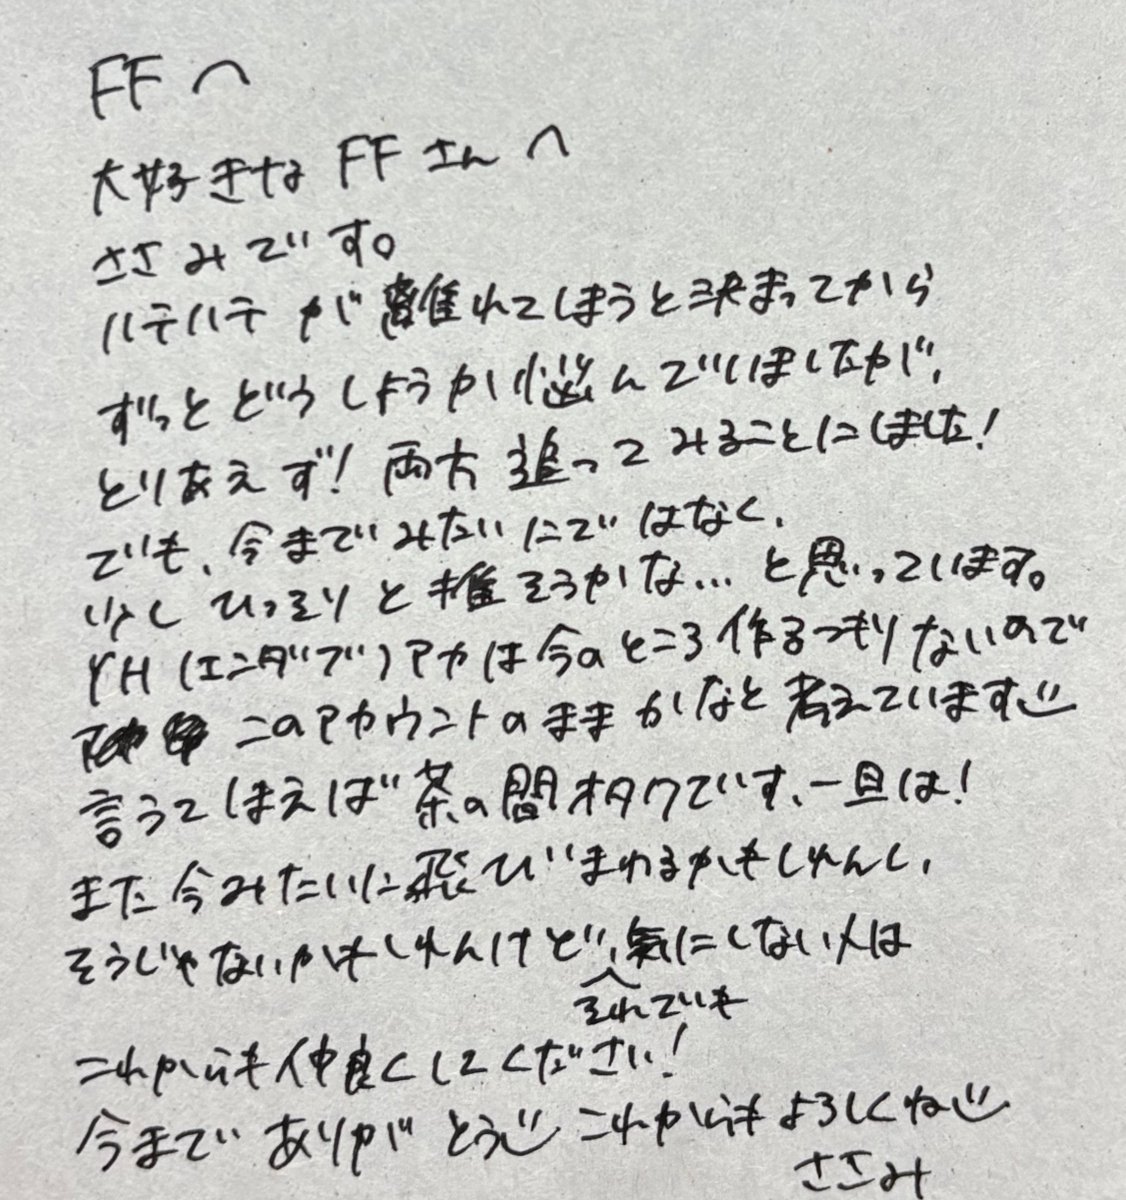 FFへ
大好きな FFさんへ
ささみです。
ハテハテが離れてしまうと決まってから
ずっとどうしようか悩んでいましたが、
とりあえず!両方追ってみることにしました!
でも、今までみたいにではなく、
少しひっそりと推そうかな...と思っています。
YH(エンダブ)アカは今のところ作るつもりないので
このアカウントのままかなと考えています
言うてしまえば茶の間オタクです、一旦は!
また今みたいに飛びまわるかもしれんし、
そうじゃないかもしれんけど、気にしない人は
それでいも
これからも仲良くしてください!
今までありがとう これからもよろしくね
ささみ